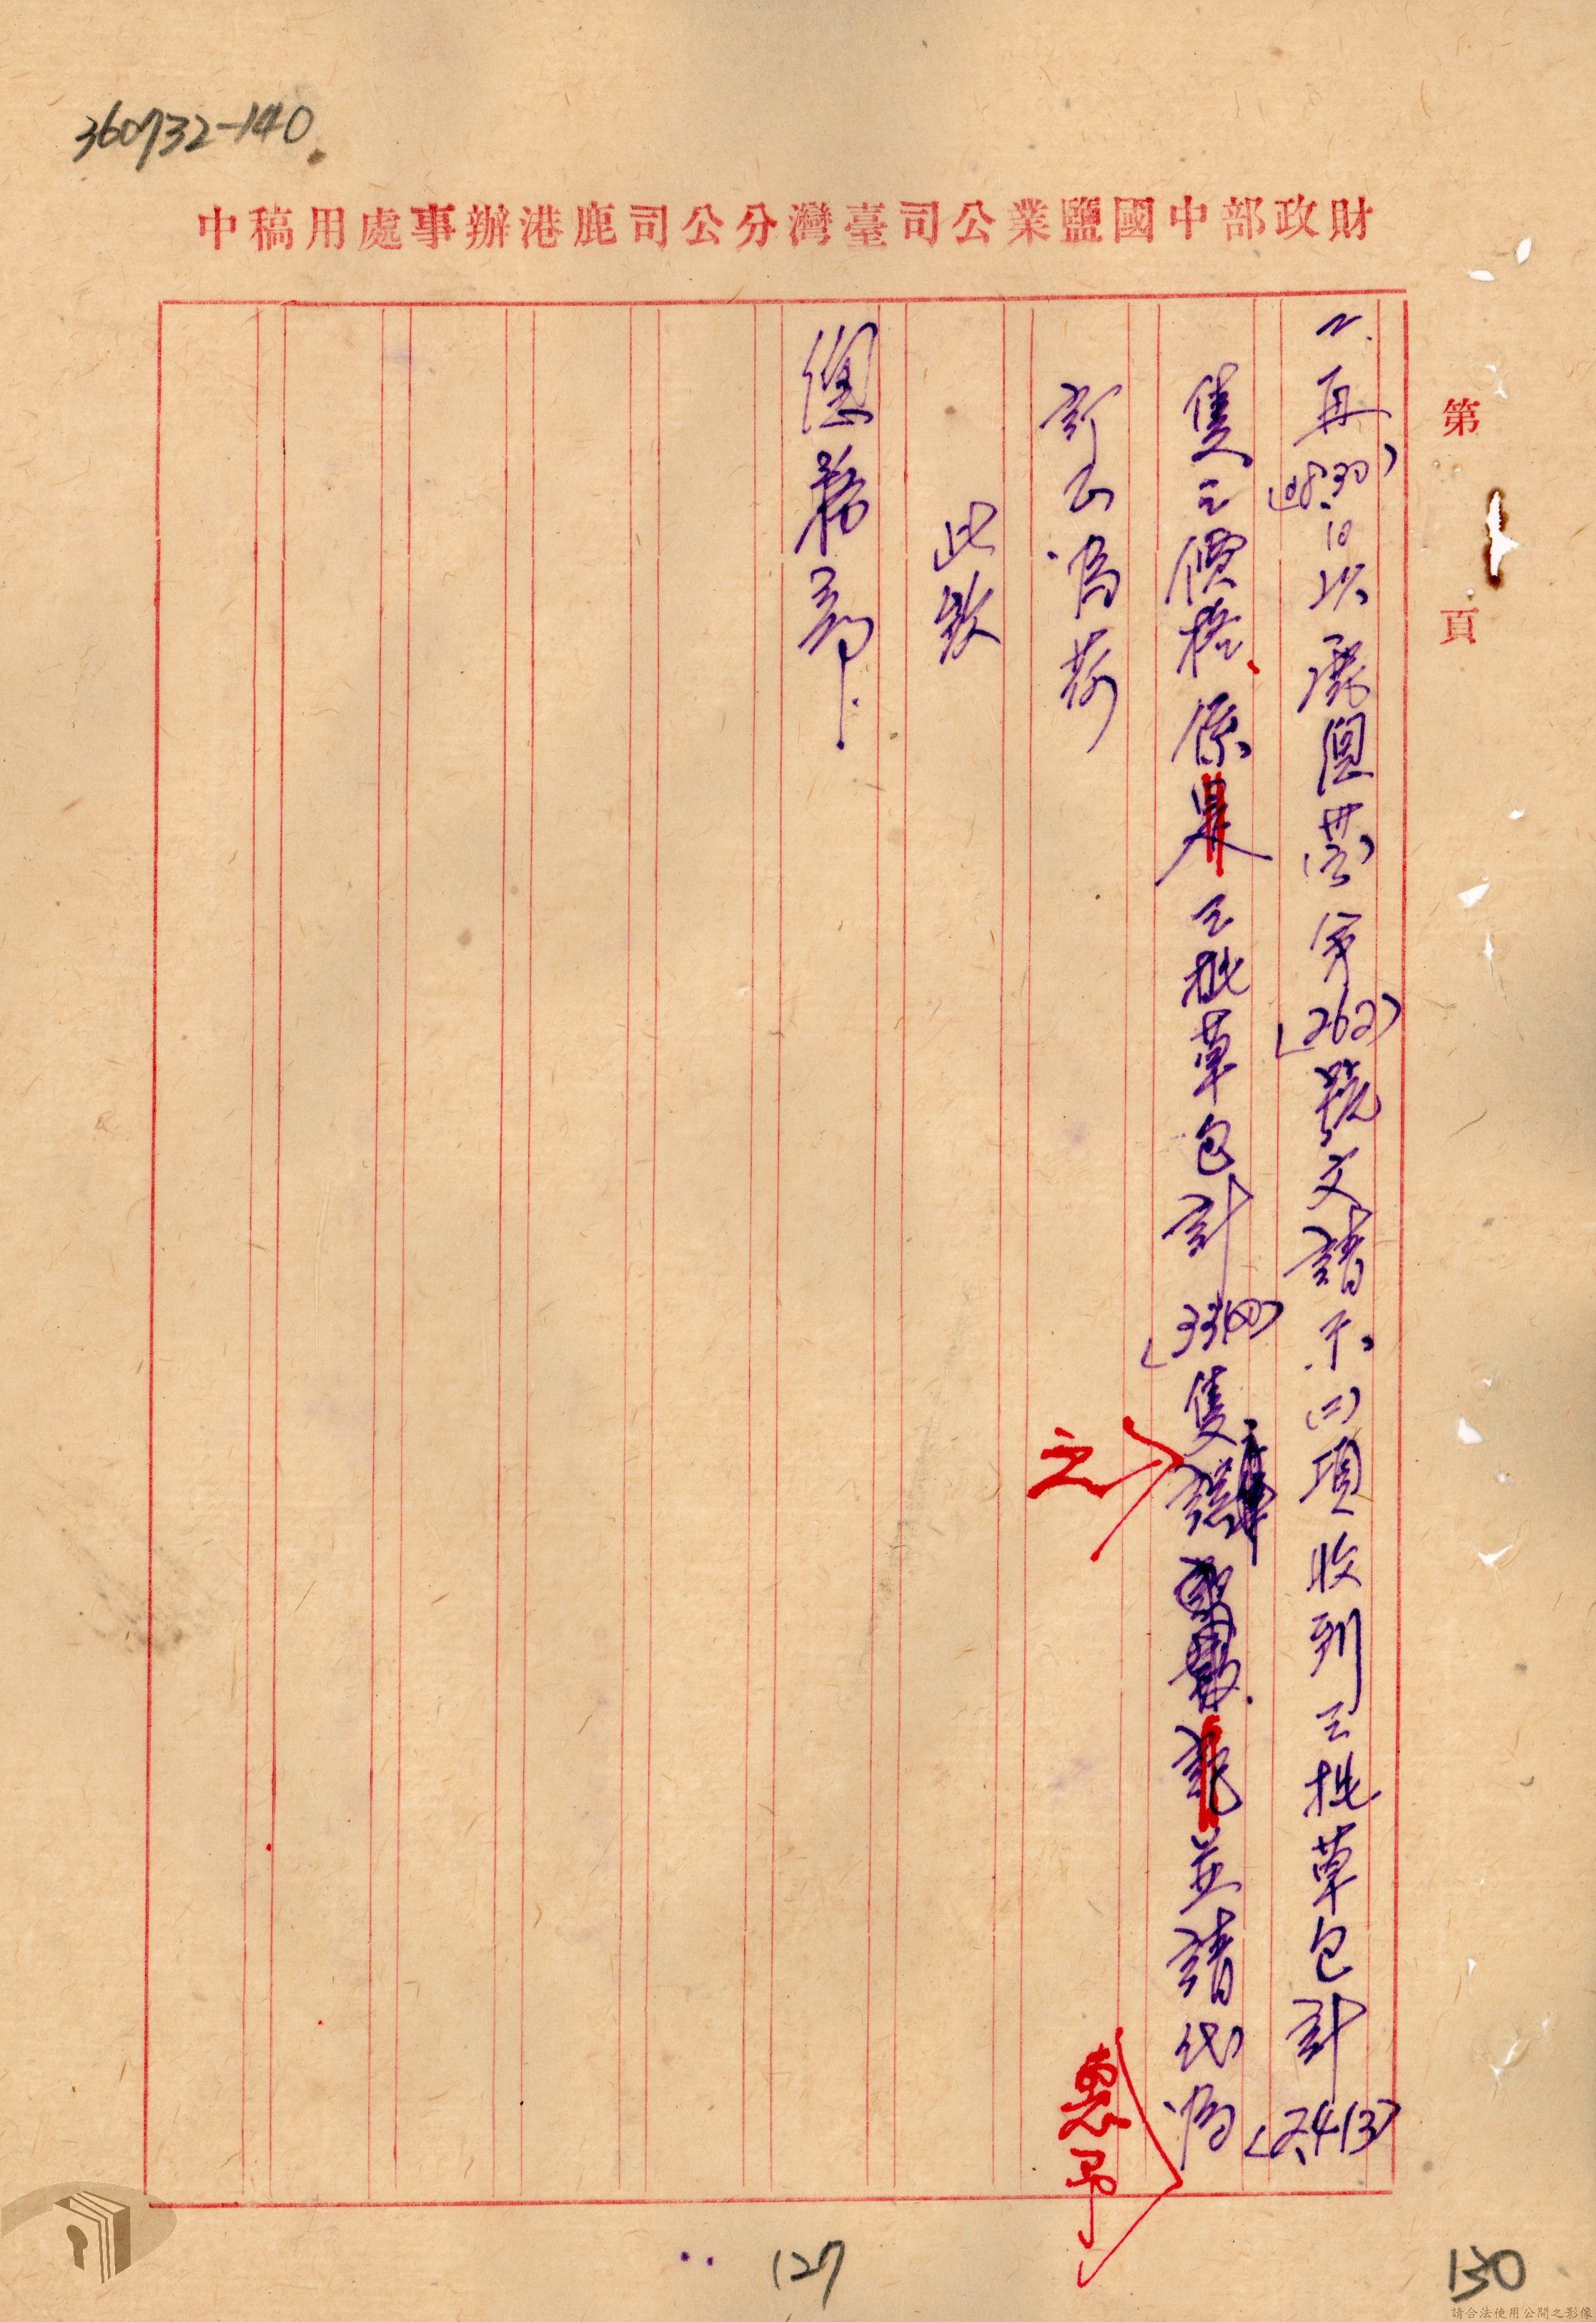 360732-140
財政部中國鹽業公司臺灣分公司鹿港辦事處用稿中
第 頁
2. 再(8.30) 以鹿 字(262)號文請示(二)項收列三批草包計(2,413)
隻之價格係 三批草包計(3360)隻之誤 並請代為惠予
訂正為荷
此致
總務部
127
130
請合法使用公開之影像